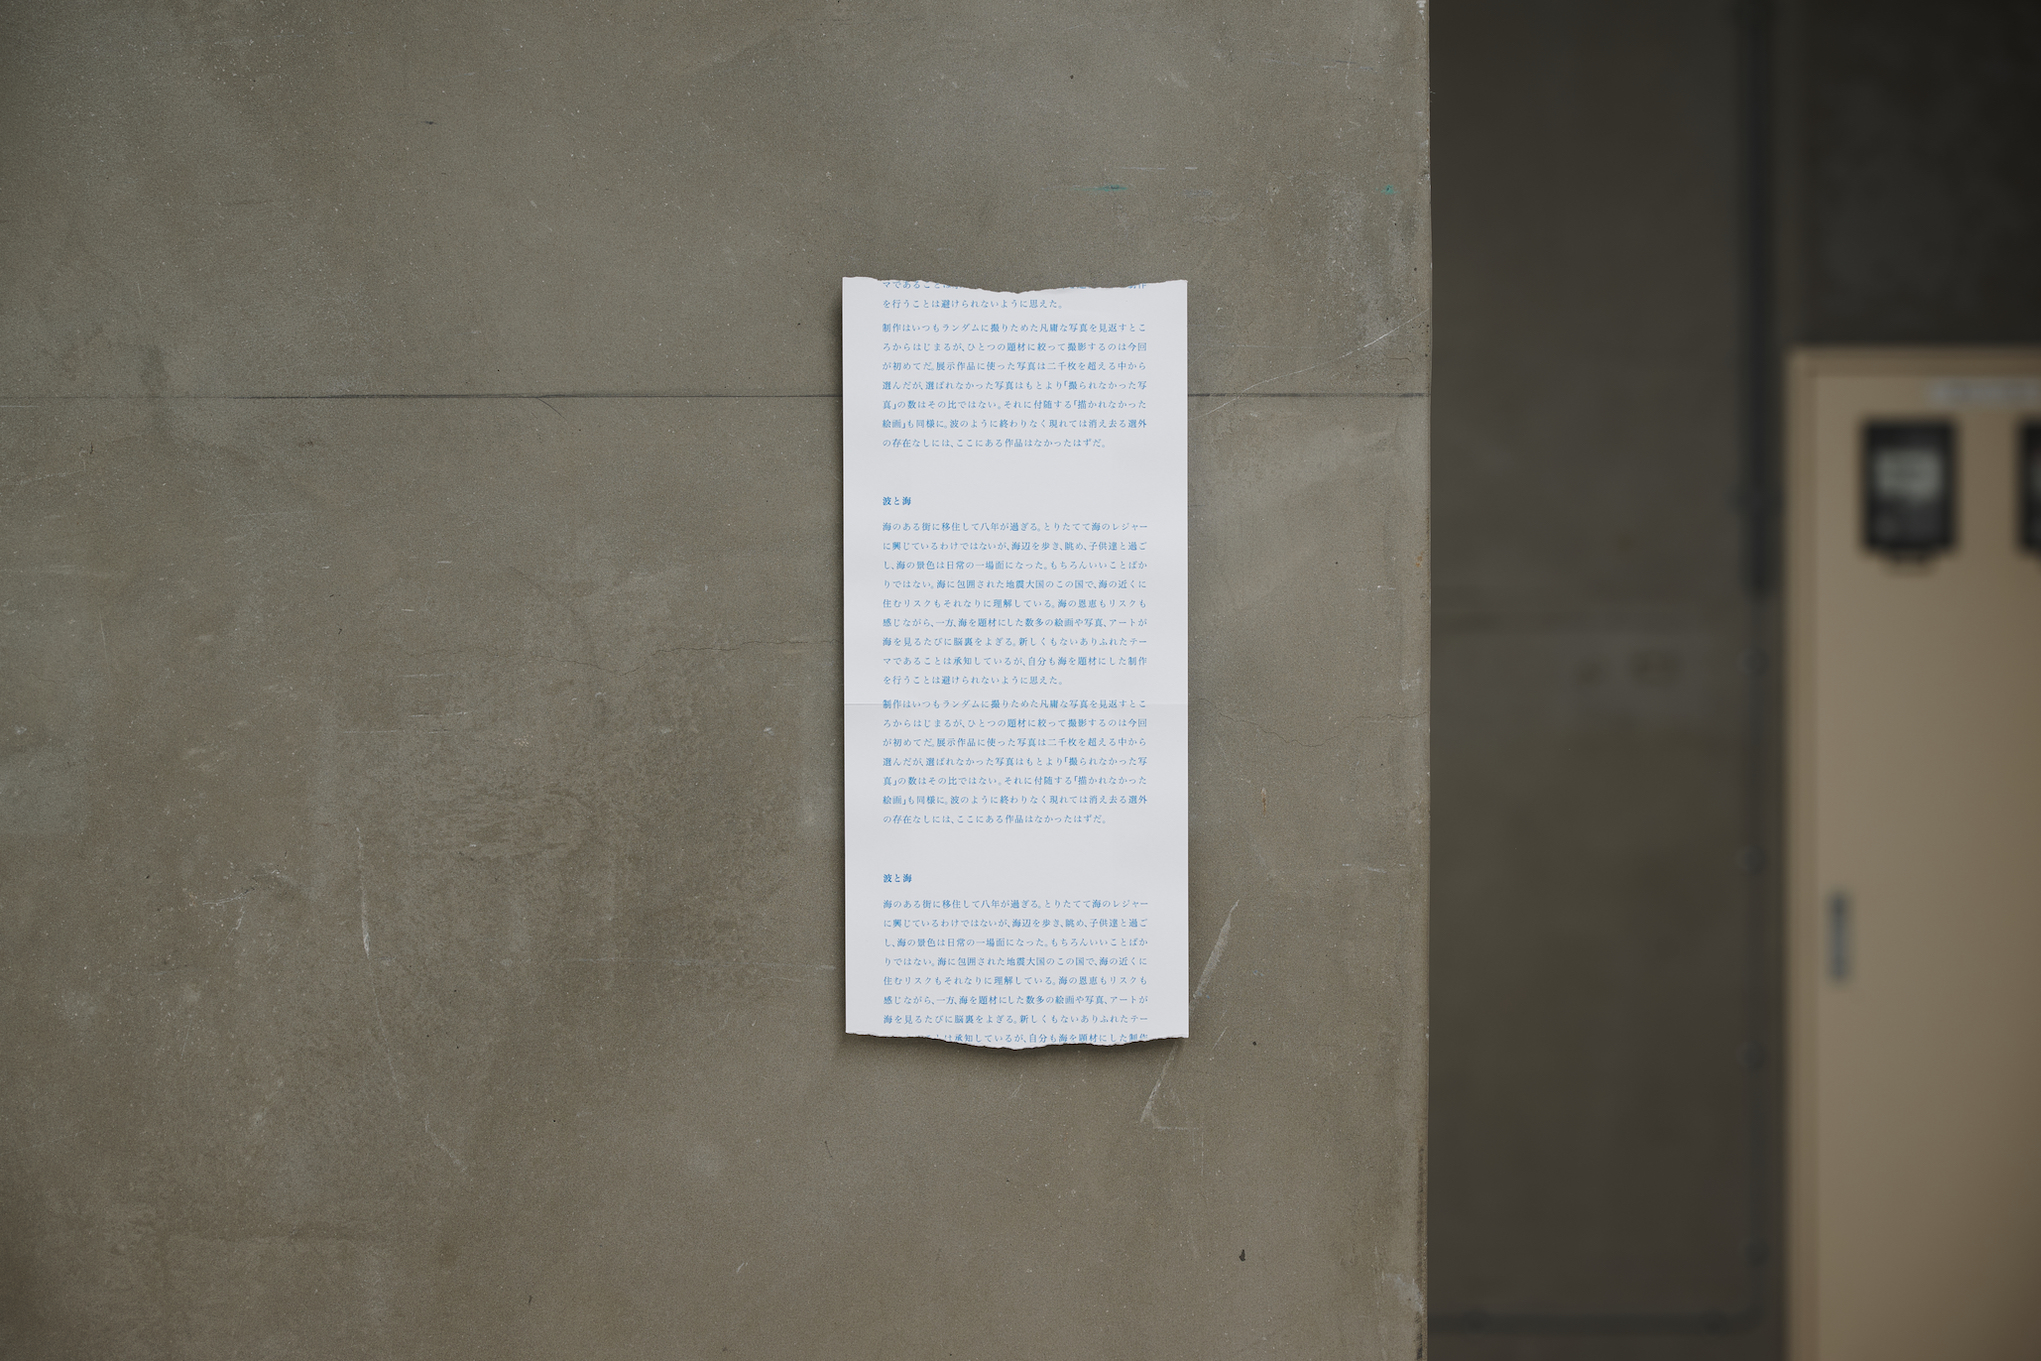 マであることは
を行うことは避けられないように思えた。
制作はいつもランダムに撮りためた凡庸な写真を見返すとこ
ろからはじまるが、ひとつの題材に絞って撮影するのは今回
が初めてだ。展示作品に使った写真は二千枚を超える中から
選んだが、選ばれなかった写真はもとより「撮られなかった写
真」の数はその比ではない。それに付随する「描かれなかった
絵画」も同様に。波のように終わりなく現れては消え去る選外
の存在なしには、ここにある作品はなかったはずだ。
波と海
海のある街に移住して八年が過ぎる。とりたてて海のレジャー
に興じているわけではないが、海辺を歩き、眺め、子供達と過ご
し、海の景色は日常の一場面になった。もちろんいいことばか
りではない。海に包囲された地震大国のこの国で、海の近くに
住むリスクもそれなりに理解している。海の恩恵もリスクも
感じながら、一方、海を題材にした数多の絵画や写真、アートが
海を見るたびに脳裏をよぎる。新しくもないありふれたテー
マであることは承知しているが、自分も海を題材にした制作
を行うことは避けられないように思えた。
制作はいつもランダムに撮りためた凡庸な写真を見返すとこ
ろからはじまるが、ひとつの題材に絞って撮影するのは今回
が初めてだ。展示作品に使った写真は二千枚を超える中から
選んだが、選ばれなかった写真はもとより「撮られなかった写
真」の数はその比ではない。それに付随する「描かれなかった
絵画」も同様に。波のように終わりなく現れては消え去る選外
の存在なしには、ここにある作品はなかったはずだ。
波と海
海のある街に移住して八年が過ぎる。とりたてて海のレジャー
に興じているわけではないが、海辺を歩き、眺め、子供達と過ご
し、海の景色は日常の一場面になった。もちろんいいことばか
りではない。海に包囲された地震大国のこの国で、海の近くに
住むリスクもそれなりに理解している。海の恩恵もリスクも
感じながら、一方、海を題材にした数多の絵画や写真、アートが
海を見るたびに脳裏をよぎる。新しくもないありふれたテー
は承知しているが、自分も海を題材にした制作